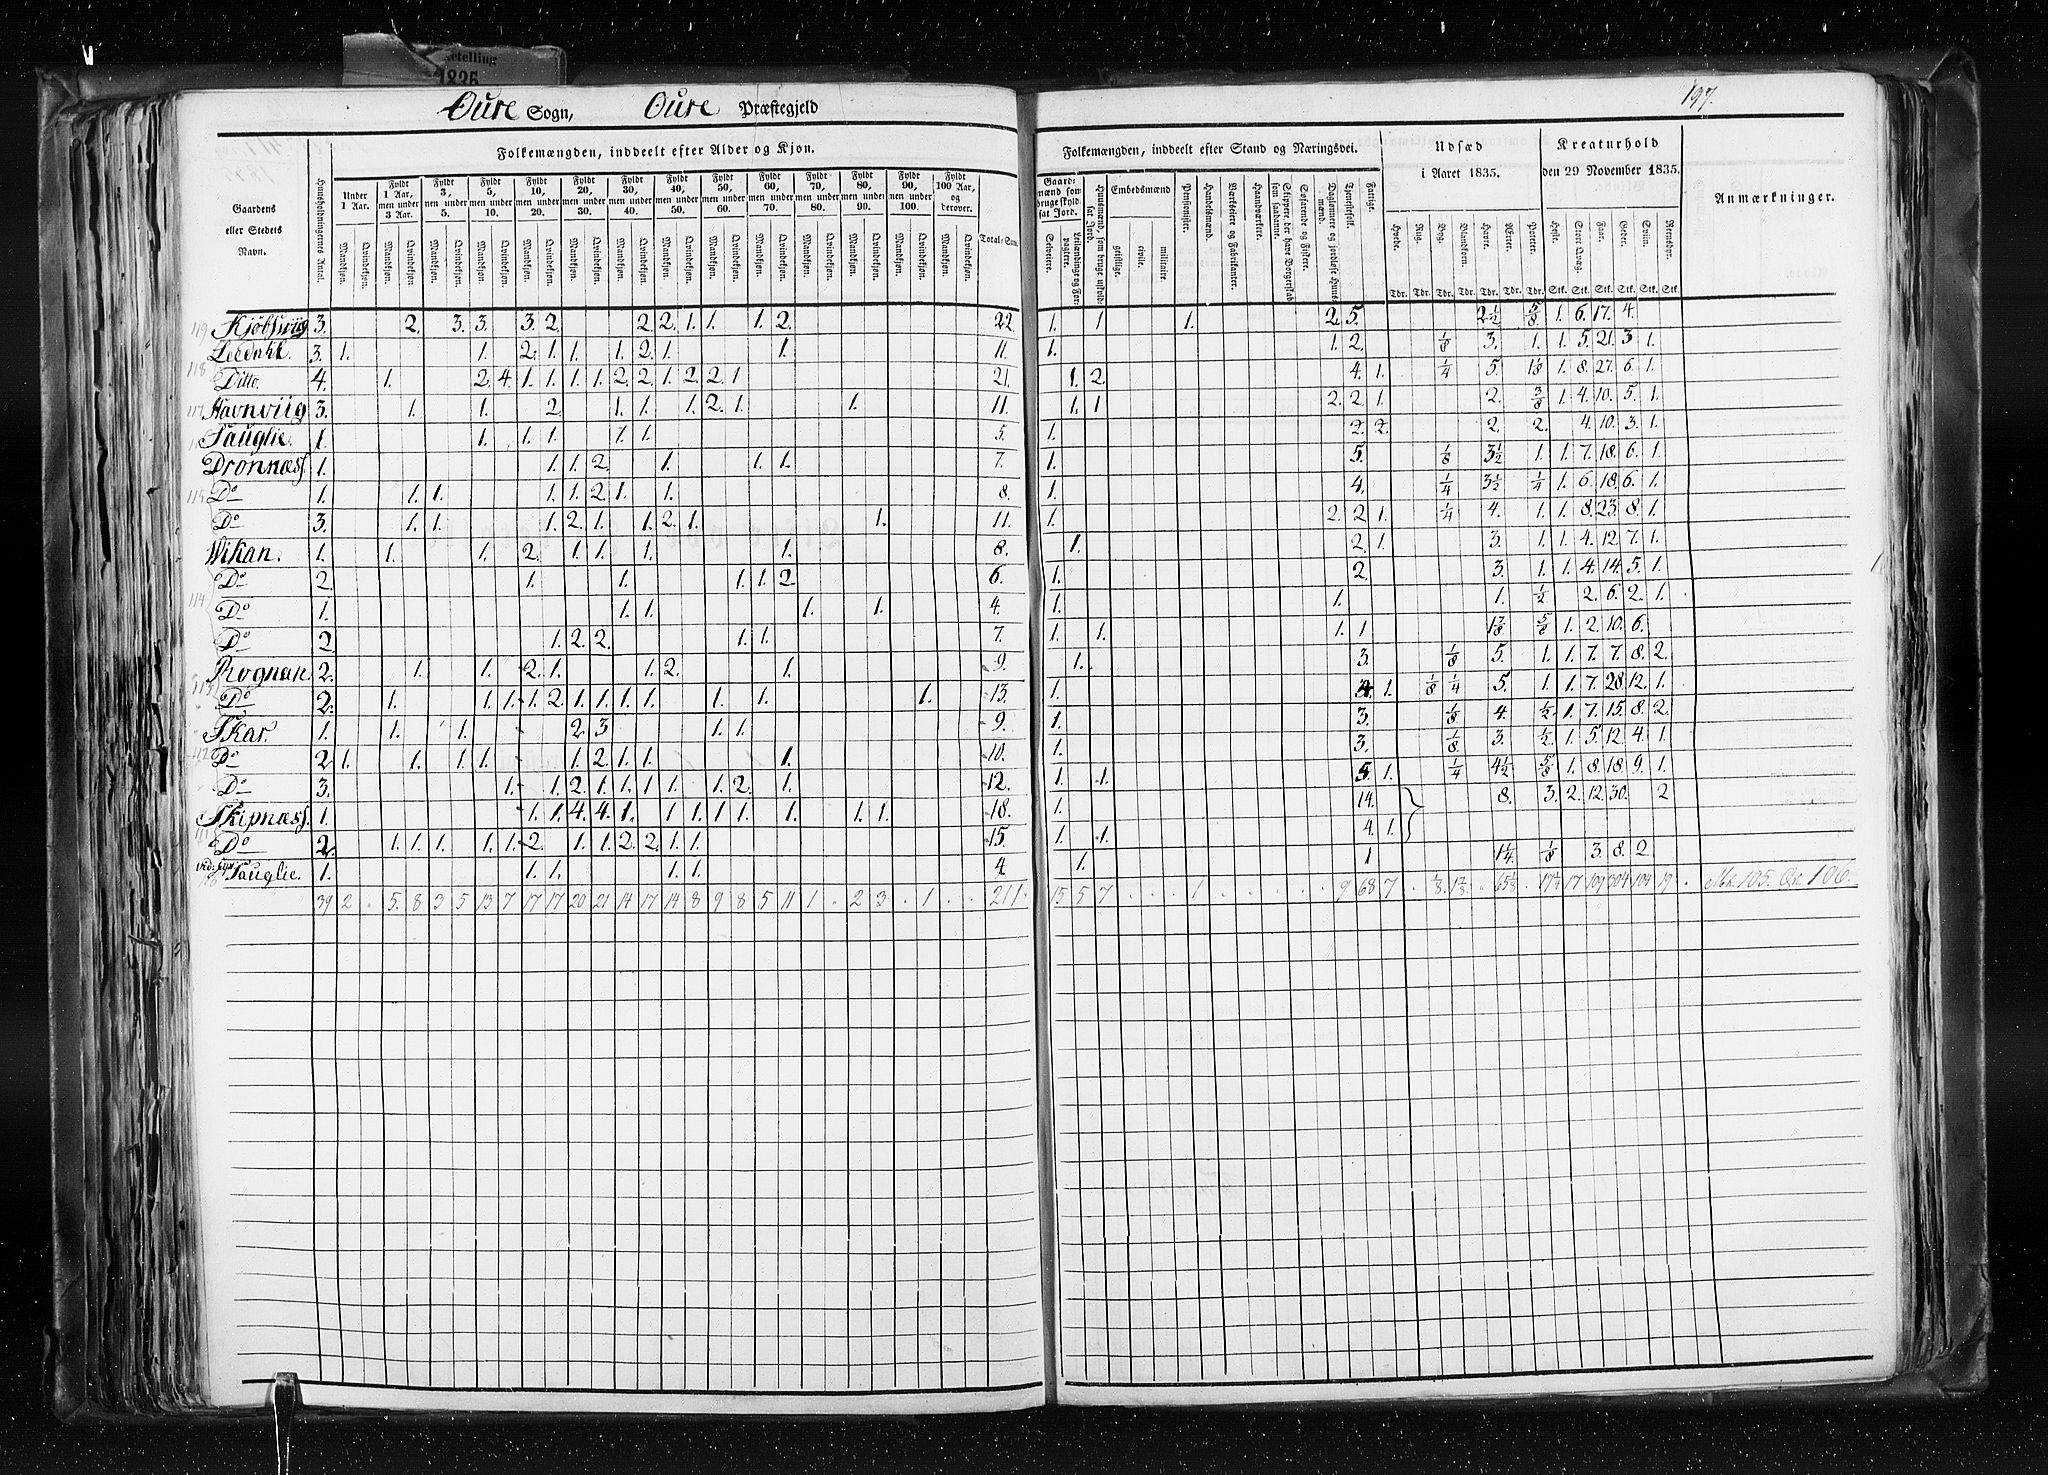 ketelling
1835
Oure Sogn, Oure Præstegjeld
197.
Folkemængden, inddeelt efter Alder og Kjøn.
Folkemængden, inddeelt efter Stand og Næringsvei.
Udsæd i Aaret 1835.
Kreaturhold den 29 November 1835.
Anmærkninger.
Gaardens eller Stedets Navn.
Huusholdningernes Antal.
Under 1 Aar.
Fyldt 1 Aar, men under 3 Aar.
Fyldt 3, men under 5.
Fyldt 5, men under 10.
Fyldt 10, men under 20.
Fyldt 20, men under 30.
Fyldt 30, men under 40.
Fyldt 40, men under 50.
Fyldt 50, men under 60.
Fyldt 60, men under 70.
Fyldt 70, men under 80.
Fyldt 80, men under 90.
Fyldt 90, men under 100.
Fyldt 100 Aar, og derover.
Mandkjøn. Qvindekjøn.
Total-Sum.
Gaardmænd som bruge skyldsat Jord.
Selveiere.
Leilændinge og Forpagtere.
Huusmænd, som bruge uskyldsat Jord.
Embedsmænd
geistlige. civile. militaire.
Pensionister.
Handelsmænd.
Værkseiere og Fabrikanter.
Haandværkere.
Skippere, der have Borgerskab som saadanne.
Søfarende og Fiskere.
Daglønnere og jordløse Huusmænd.
Tjenestefolk.
Fattige.
Hvede. Rug. Byg. Blandkorn. Havre. Ærter. Poteter.
Tdr. Tdr. Tdr. Tdr. Tdr. Tdr. Tdr.
Heste. Stort Qvæg. Faar. Geder. Sviin. Rensdyr.
Stk. Stk. Stk. Stk. Stk. Stk.
119 Kjøbsviig 3. 2. 3. 3. 3. 2. 2. 2. 1. 1. 1. 2. 22. 1. 1 1. 2. 5. 2½ 5/8 1. 6. 17. 4.
3. 1. 1. 2. 1. 1. 1. 2. 1. 1. 11. 1. 1. 2. 1/8 3. 1. 1. 5. 21. 3 1.
118 Ditto. 4. 1. 2. 4. 1. 1. 1. 1. 2. 2. 1. 2. 2. 1 21. 1. 2. 4. 1. 1/4 5. 1. 8. 27. 6. 1.
117 Havnviig 3. 1. 1. 2. 1. 1. 1. 2. 1. 1. 11. 1. 1 2. 2. 1 2. 3/8 1. 4. 10. 5. 1.
Tauglie. 1. 1. 1. 1. 1. 1. 5. 1. 2. 2. 2. 2. 4. 10. 3. 1.
Dronnæss. 1. 1. 1. 2. 1. 1. 1. 7. 1. 5. 1/8 3½ 1. 1. 7. 18. 6. 1.
115 Do 1. 1. 1. 1. 1. 2. 1. 1. 8. 1. 4. 1/4 3½ 1/4 1. 6. 18. 6. 1.
Do 3. 1. 1. 1. 2. 1. 1. 2. 1. 1. 11. 1. 2. 2. 1. 1/4 4. 1. 1. 8. 23. 8. 1.
Wikan. 1. 1. 1. 2. 1. 1. 1. 1. 8. 1. 2. 1. 3. 1. 1. 4. 12. 7. 1.
Do 2. 1. 1. 1. 1. 2. 6. 1. 2. 3. 1. 1. 4. 14. 5. 1.
114 Do 1. 1. 1. 1. 1. 4. 1. 1. 1. ½ 2. 6. 2. 1.
Do 2. 1. 2. 2. 1. 1. 7. 1. 1. 1. 1 1⅞ 5/8 1. 2. 10. 6.
Rognan. 2. 1. 1. 2. 1. 1. 2. 1. 9. 1. 3. 1/8 5. 1. 1. 7. 7. 8. 2.
113 Do 2. 1. 1. 1. 1. 2. 1. 1. 1. 1. 1. 1. 1. 13. 1. 4. 1. 1/8 1/4 5. 1. 1. 7. 28. 12. 1.
Skar. 1. 1. 1. 2. 3 1. 1. 9. 1. 3. 1/8 4. ½ 1. 7. 15. 8. 2.
112 Do 2. 1. 1. 1. 1. 1. 2. 1. 1. 1. 10. 1. 3. 1/8 3. ½ 1. 5. 12. 4. 1.
Do 3. 1. 1. 2. 1. 1. 1 1. 1. 2. 1. 12. 1. 1. 5. 1. 1/4 4½ 5/8 1. 8. 18. 9. 1.
Skipnæss. 1. 1. 1. 4. 4. 1. 1. 1. 1. 1. 1. 1. 1. 18. 1. 14. 8. 3. 2. 12. 30. 2
111 Do 2. 1. 1. 1. 1. 1. 2. 1. 1. 2. 2. 1. 1. 15. 1. 1. 4. 1.
Tauglie. 1. 1. 1. 1. 1. 4. 1. 1 1¼ 1/8 3. 8. 2.
39 2 . 5. 8 3 5 13 7 17 17 20 21 14 17 14 8 9 8 5 11 1 . 2 3 . 1 . . 211. 15 5 7 . . . 1 . . . . . 9 68 7 . 1/8 1⅞ . 65⅛ . 17¼ 17 109 304 104 19 . Mk. 105. Qk. 106.